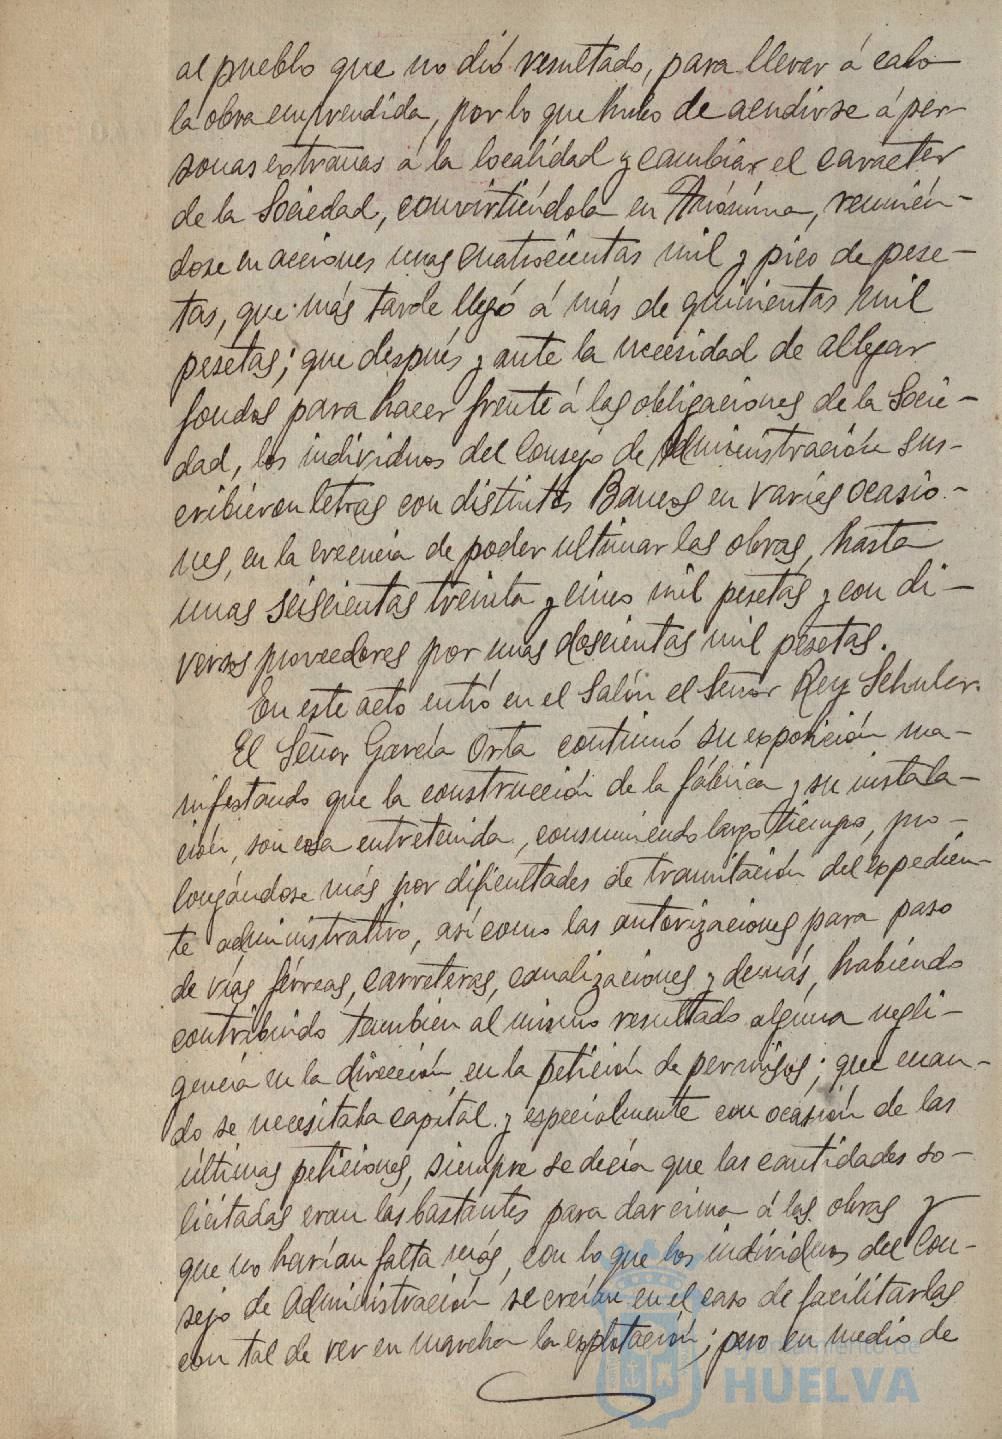 al pueblo que no dió resultado, para llevar á cabo
la obra emprendida, por lo que hubo de acudirse á per
sonas extrañas á la localidad y cambiar el carácter
de la Sociedad, convirtiéndola en Anónima, reunién-
dose en acciones unas cuatrocientas mil y pico de pese-
tas, que más tarde llegó á más de quinientas mil
pesetas; que después y ante la necesidad de allegar
fondos para hacer frente á las obligaciones de la Socie-
dad, los individuos del Consejo de Administración sus-
cribieron letras con distintos Bancos en varias ocasio-
nes, en la creencia de poder ultimar las obras, hasta
unas seiscientas treinta y cinco mil pesetas y con di-
versos proveedores por unas doscientas mil pesetas.
En este acto entró en el Salón el Señor Rey Schuler.
El Señor García Orta continuó su exposición ma-
nifestando que la construcción de la fábrica y su instala-
ción, son cosa entretenida, consumiendo largo tiempo, pro-
longándose más por dificultades de tramitación del expedien-
te administrativo, así como las autorizaciones para paso
de vías férreas, carreteras, canalizaciones y demás, habiendo
contribuido también al mismo resultado alguna negli-
gencia en la dirección en la petición de permisos; que cuan-
do se necesitaba capital y especialmente con ocasión de las
últimas peticiones, siempre se decía que las cantidades so-
licitadas eran las bastantes para dar cima á las obras y
que no harían falta más, con lo que los individuos del Con-
sejo de Administración se creían en el caso de facilitarlas
con tal de ver en marcha la explotación; pero en medio de
Ayuntamiento de
HUELVA